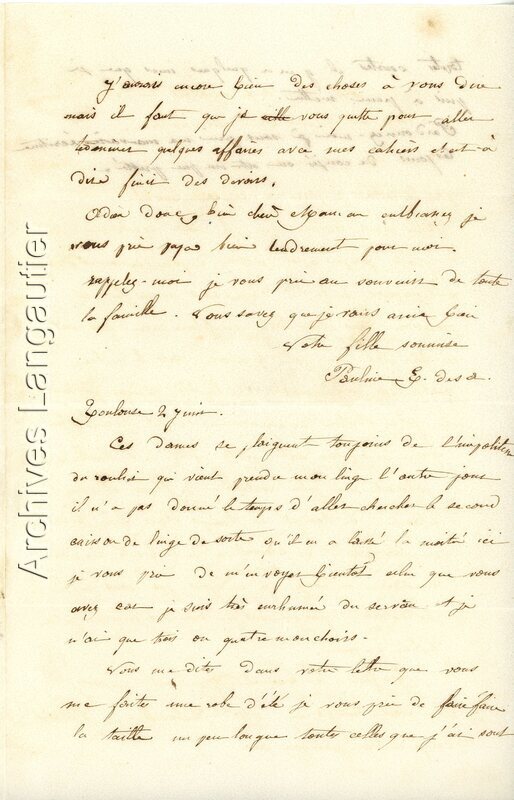 J'aurais encore bien des choses à vous dire
mais il faut que je vous quitte pour aller
terminer quelques affaires avec mes cahiers c'est à
dire finir des devoirs.
Adieu donc, bien chère Maman embrassez je
vous prie papa bien tendrement pour moi.
rappelez-moi je vous prie au souvenir de toute
la famille. Vous savez que je vous aime bien
Votre fille soumise
Pauline E. des a.
Toulouse 2 juin.
Ces dames se plaignent toujours de l'impolitesse
du roulier qui vient prendre mon linge l'autre jour
il n'a pas donné le temps d'aller chercher le second
caisson de linge de sorte qu'il m'a laissé la moitié ici
je vous prie de m'envoyer bientôt celui que vous
avez car je suis très enrhumée du cerveau et je
n'ai que trois ou quatre mouchoirs.
Vous me dites dans votre lettre que vous
me faites une robe d'été je vous prie de faire faire
la taille un peu longue toutes celles que j'ai sont
Archives Langautier